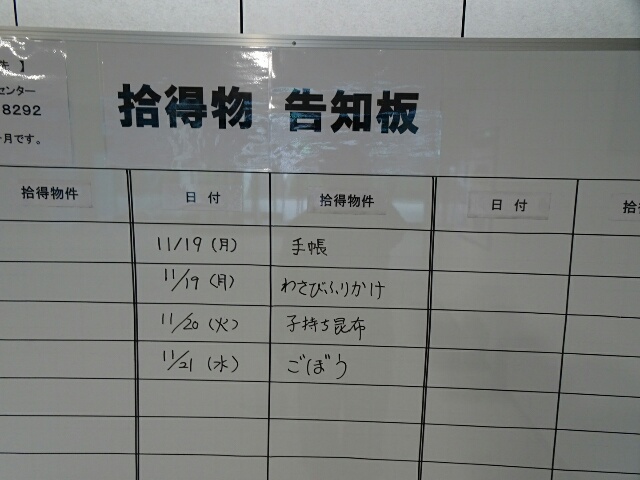 】
センター
8292
月です。
拾得物 告知板
拾得物件 日付 拾得物件 日付 拾
11/19(月) 手帳
11/19(月) わさびふりかけ
11/20(火) 子持ち昆布
11/21(水) ごぼう